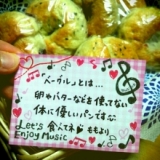 「ベーグル」とは…
卵やバターなどを使ってない
体に優しいパンですな
Let's 食べてネ ももより
Enjoy Music